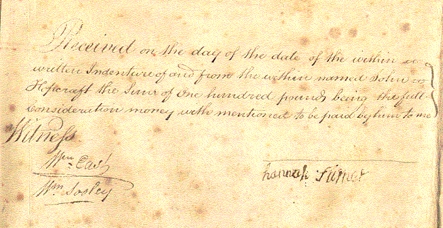 Received on the day of the date of the within
written Indenture of and from the within named John
Hopcraft the Sum of One hundred pounds being the full
Consideration money within mentioned to be paid by him to me
Witness
Wm East
Wm Sosley
Hannah Turner